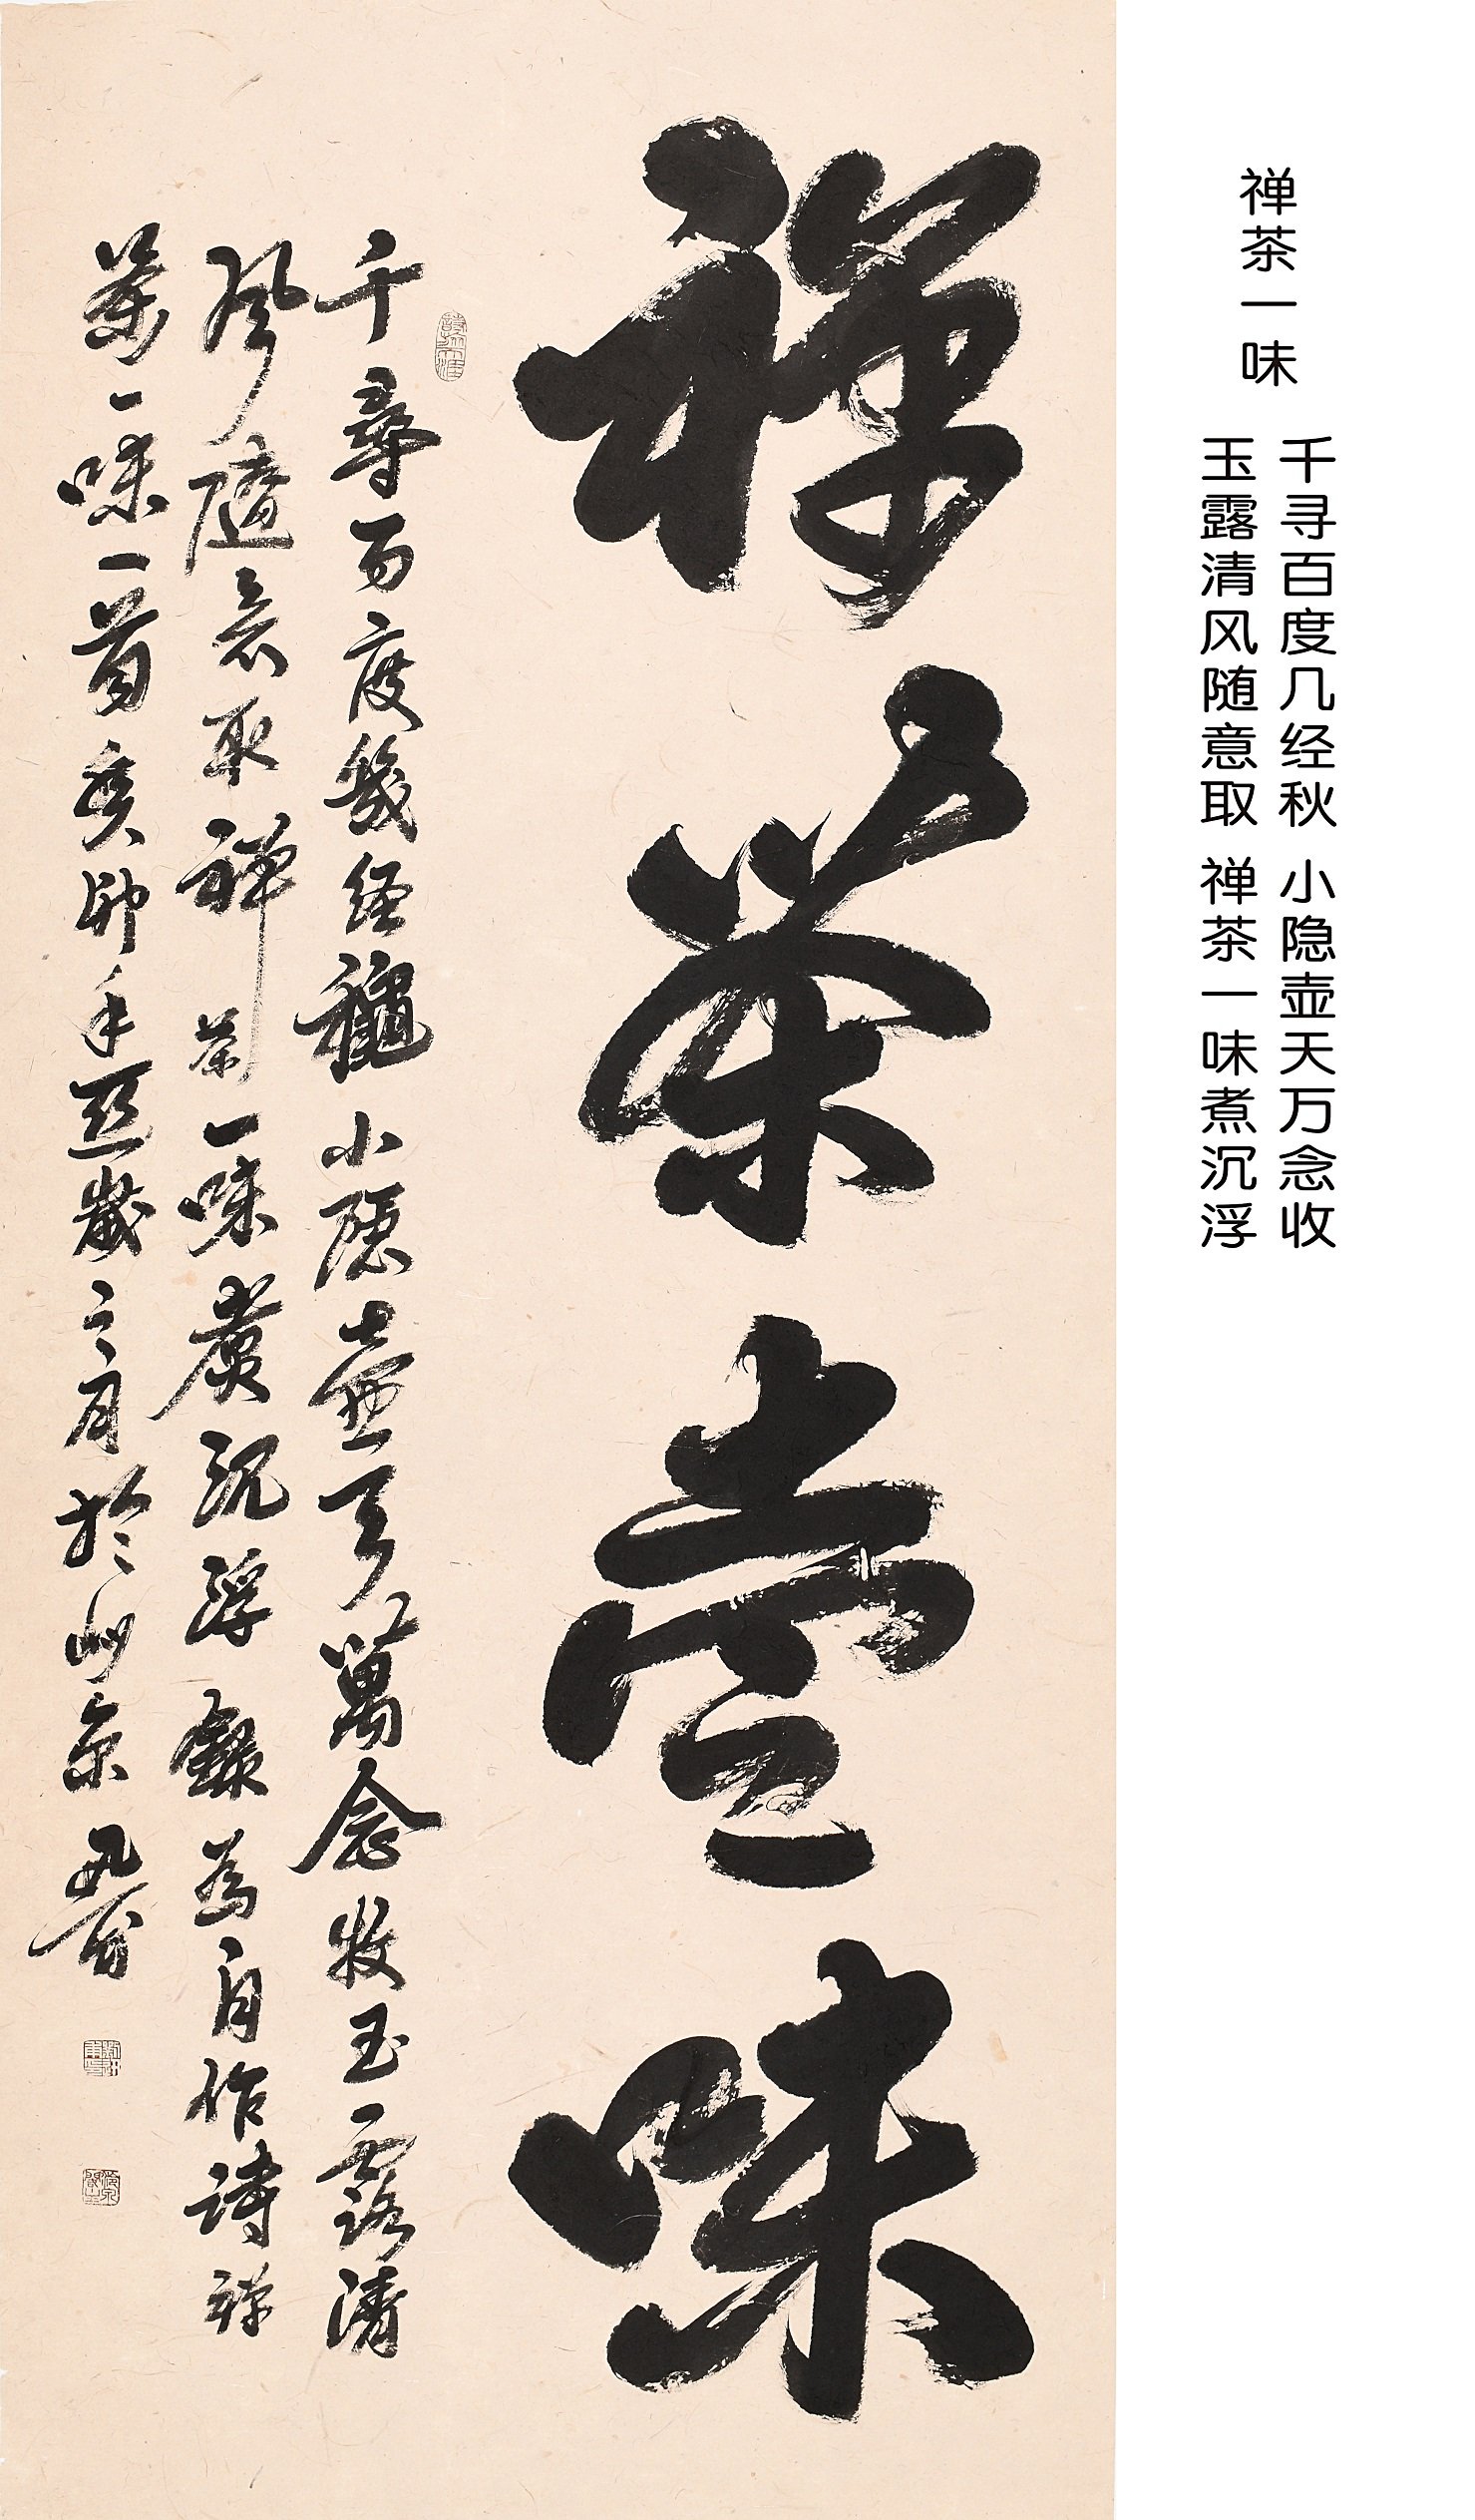 禅茶一味
千寻百度几经秋 小隐壶天万念收
玉露清风随意取 禅茶一味煮沉浮
禪茶壹味
千尋百度幾經穐小隱壺天萬念收玉露清
風隨意取禅茶一味煑沉浮錄為自作詩禅
茶一味一首癸卯年歲月於北京